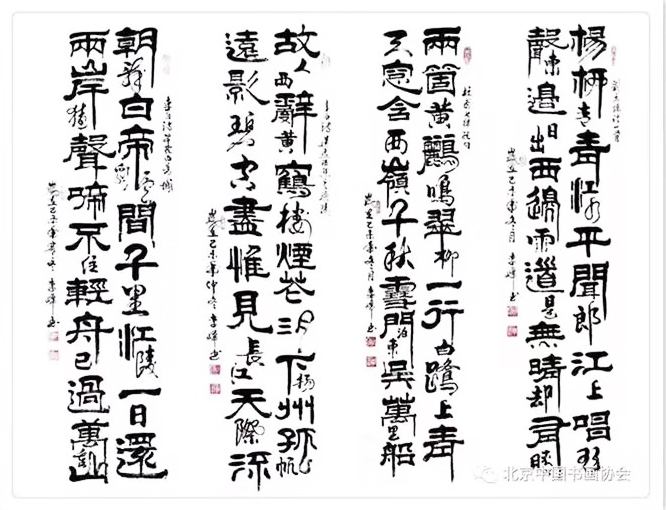 楊柳青青江水平聞郎江上唱歌
聲東邊日出西邊雨道是無晴却有晴
兩箇黄鸝鳴翠柳一行白鷺上青
天窓含西嶺千秋雪門泊東吳萬里船
故人西辭黄鶴樓煙花三月下揚州孤帆
遠影碧空盡惟見長江天際流
朝辭白帝彩雲間千里江陵一日還
兩岸猿聲啼不住輕舟已過萬重山
北京中国书画协会